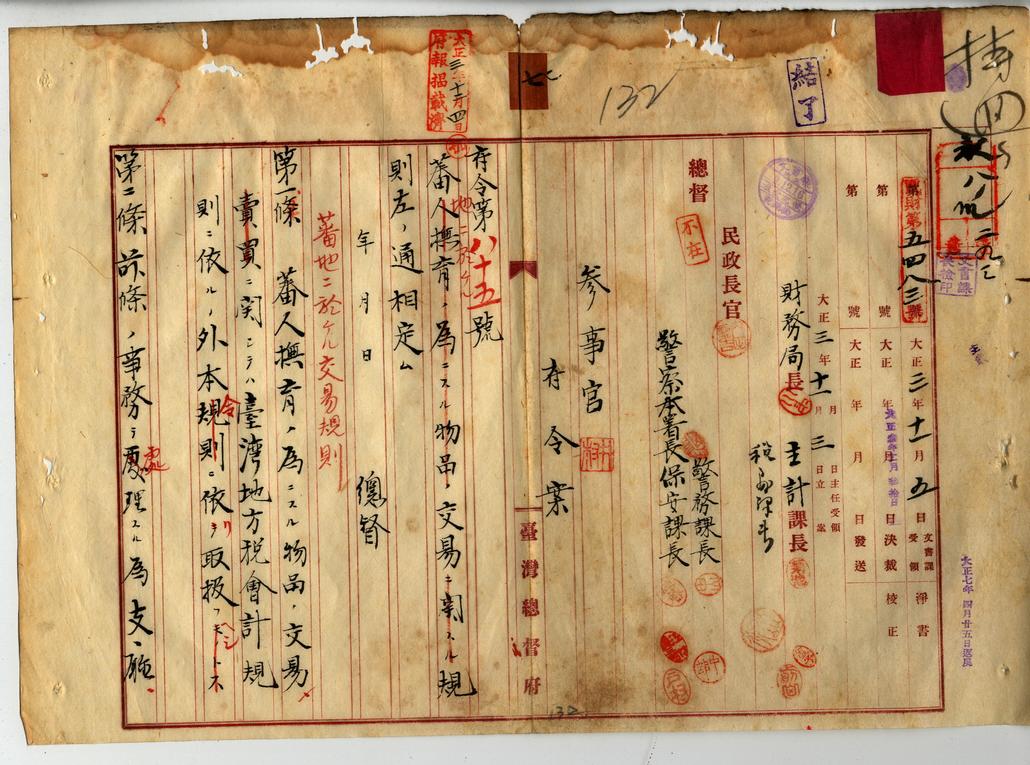 持四
秘八ノ四二九ノ三
文書課
大正七年四月廿五日返戻
第財第五四八三號 大正三年十一月五日 文書課受領 淨書
第 號 大正 年 月 日決裁 校正
第 號 大正 年 月 日發送
大正三年十一月三日立案 月 日主任受領
財務局長 主計課長
民政長官 警務課長
總督 不在 警察本署長 保安課長
參事官
府令案
臺灣總督府
七七
132
結了
大正三年十二月四日
府報揭載濟
府令第八十五號
蕃人撫育ノ為ニスル物品ノ交易ニ關スル規
地ニ於ケル
則左ノ通相定ム
年 月 日 總督
蕃地ニ於ケル交易規則
第一條 蕃人撫育ノ為ニスル物品ノ交易
賣買ニ関シテハ臺灣地方税會計規
則ニ依ルノ外本規則ニ依リ取扱フモノトス
令
第二條 前條ノ事務ヲ處理スル為支廳
處
132